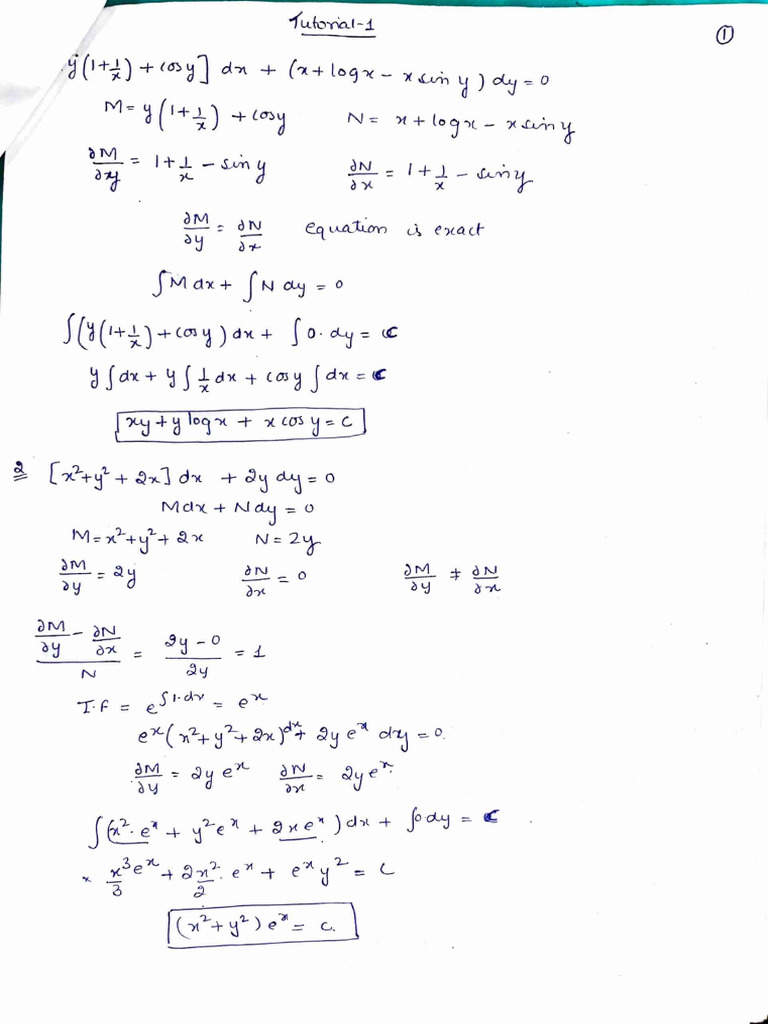 Tutorial-1
①
y(1+1/x) + cosy] dx + (x+logx - x sin y) dy = 0
M = y(1+1/x) + cosy N = x + logx - x siny
∂M/∂y = 1+1/x - siny ∂N/∂x = 1+1/x - siny
∂M/∂y = ∂N/∂x equation is exact
∫M dx + ∫N dy = 0
∫(y(1+1/x) + cosy) dx + ∫0. dy = C
y∫dx + y∫1/x dx + cosy∫dx = C
xy + y logx + x cosy = C
2 [x²+y² + 2x] dx + 2y dy = 0
Mdx + Ndy = 0
M = x²+y² + 2x N = 2y
∂M/∂y = 2y ∂N/∂x = 0 ∂M/∂y ≠ ∂N/∂x
(∂M/∂y - ∂N/∂x)/N = (2y - 0)/2y = 1
I.F = e^∫1.dx = e^x
e^x(x²+y²+2x)dx + 2y e^x dy = 0.
∂M/∂y = 2y e^x ∂N/∂x = 2y e^x.
∫(x².e^x + y²e^x + 2xe^x) dx + ∫0dy = C
x³/3 e^x + 2x²/2 . e^x + e^x y² = C
(x²+y²) e^x = c.